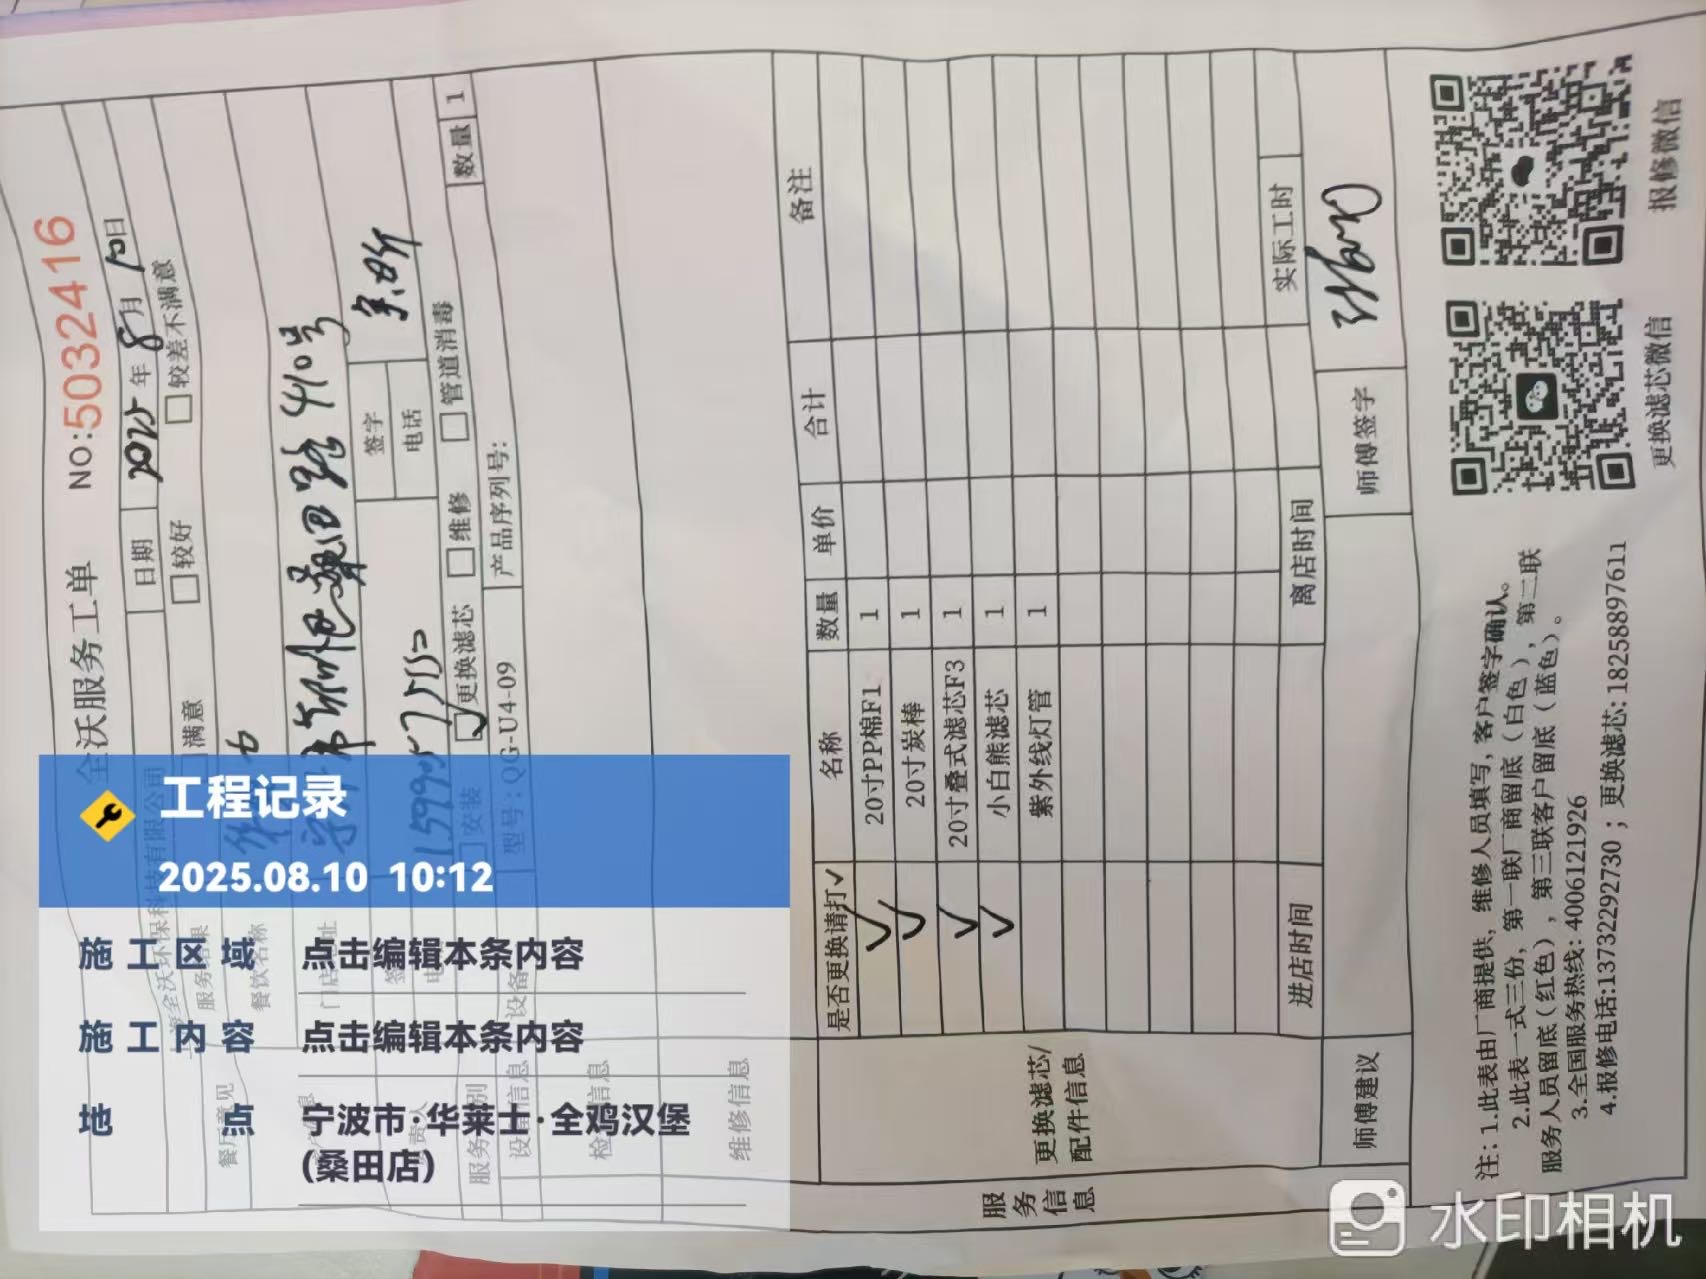 全沃服务工单 NO:5032416
日期 2025年8月10日
服务结果 满意 较好 较差不满意
餐厅意见
餐饮名称 华
门店地址 桑田路410号
签字
电话
服务类别 安装 更换滤芯 维修 管道消毒
设备信息 设备型号:QG-U4-09 产品序列号: 数量 1
维修信息
服务信息
更换滤芯/配件信息
是否更换请打✓ 名称 数量 单价 合计 备注
✓ 20寸PP棉F1 1
✓ 20寸炭棒 1
✓ 20寸叠式滤芯F3 1
✓ 小白熊滤芯 1
紫外线灯管 1
进店时间 离店时间 实际工时
师傅建议 师傅签字
注:1.此表由厂商提供,维修人员填写,客户签字确认。
2.此表一式三份,第一联厂商留底(白色),第二联
服务人员留底(红色),第三联客户留底(蓝色)。
3.全国服务热线:4006121926
4.报修电话:13732292730;更换滤芯:18258897611
更换滤芯微信 报修微信
工程记录
2025.08.10 10:12
施工区域 点击编辑本条内容
施工内容 点击编辑本条内容
地点 宁波市·华莱士·全鸡汉堡
(桑田店)
水印相机